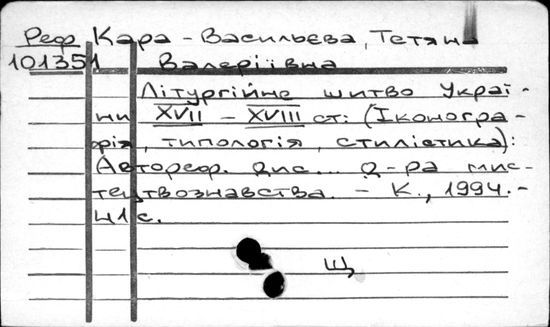 Реф Кара-Васильєва, Тетяна
101351 Валеріївна
Літургійне шитво Украї-
ни XVII - XVIII ст: (Іконогра-
фія, типологія, стилістика):
Автореф. дис... д-ра мис-
тецтвознавства. - К., 1994.-
41с.
Щ